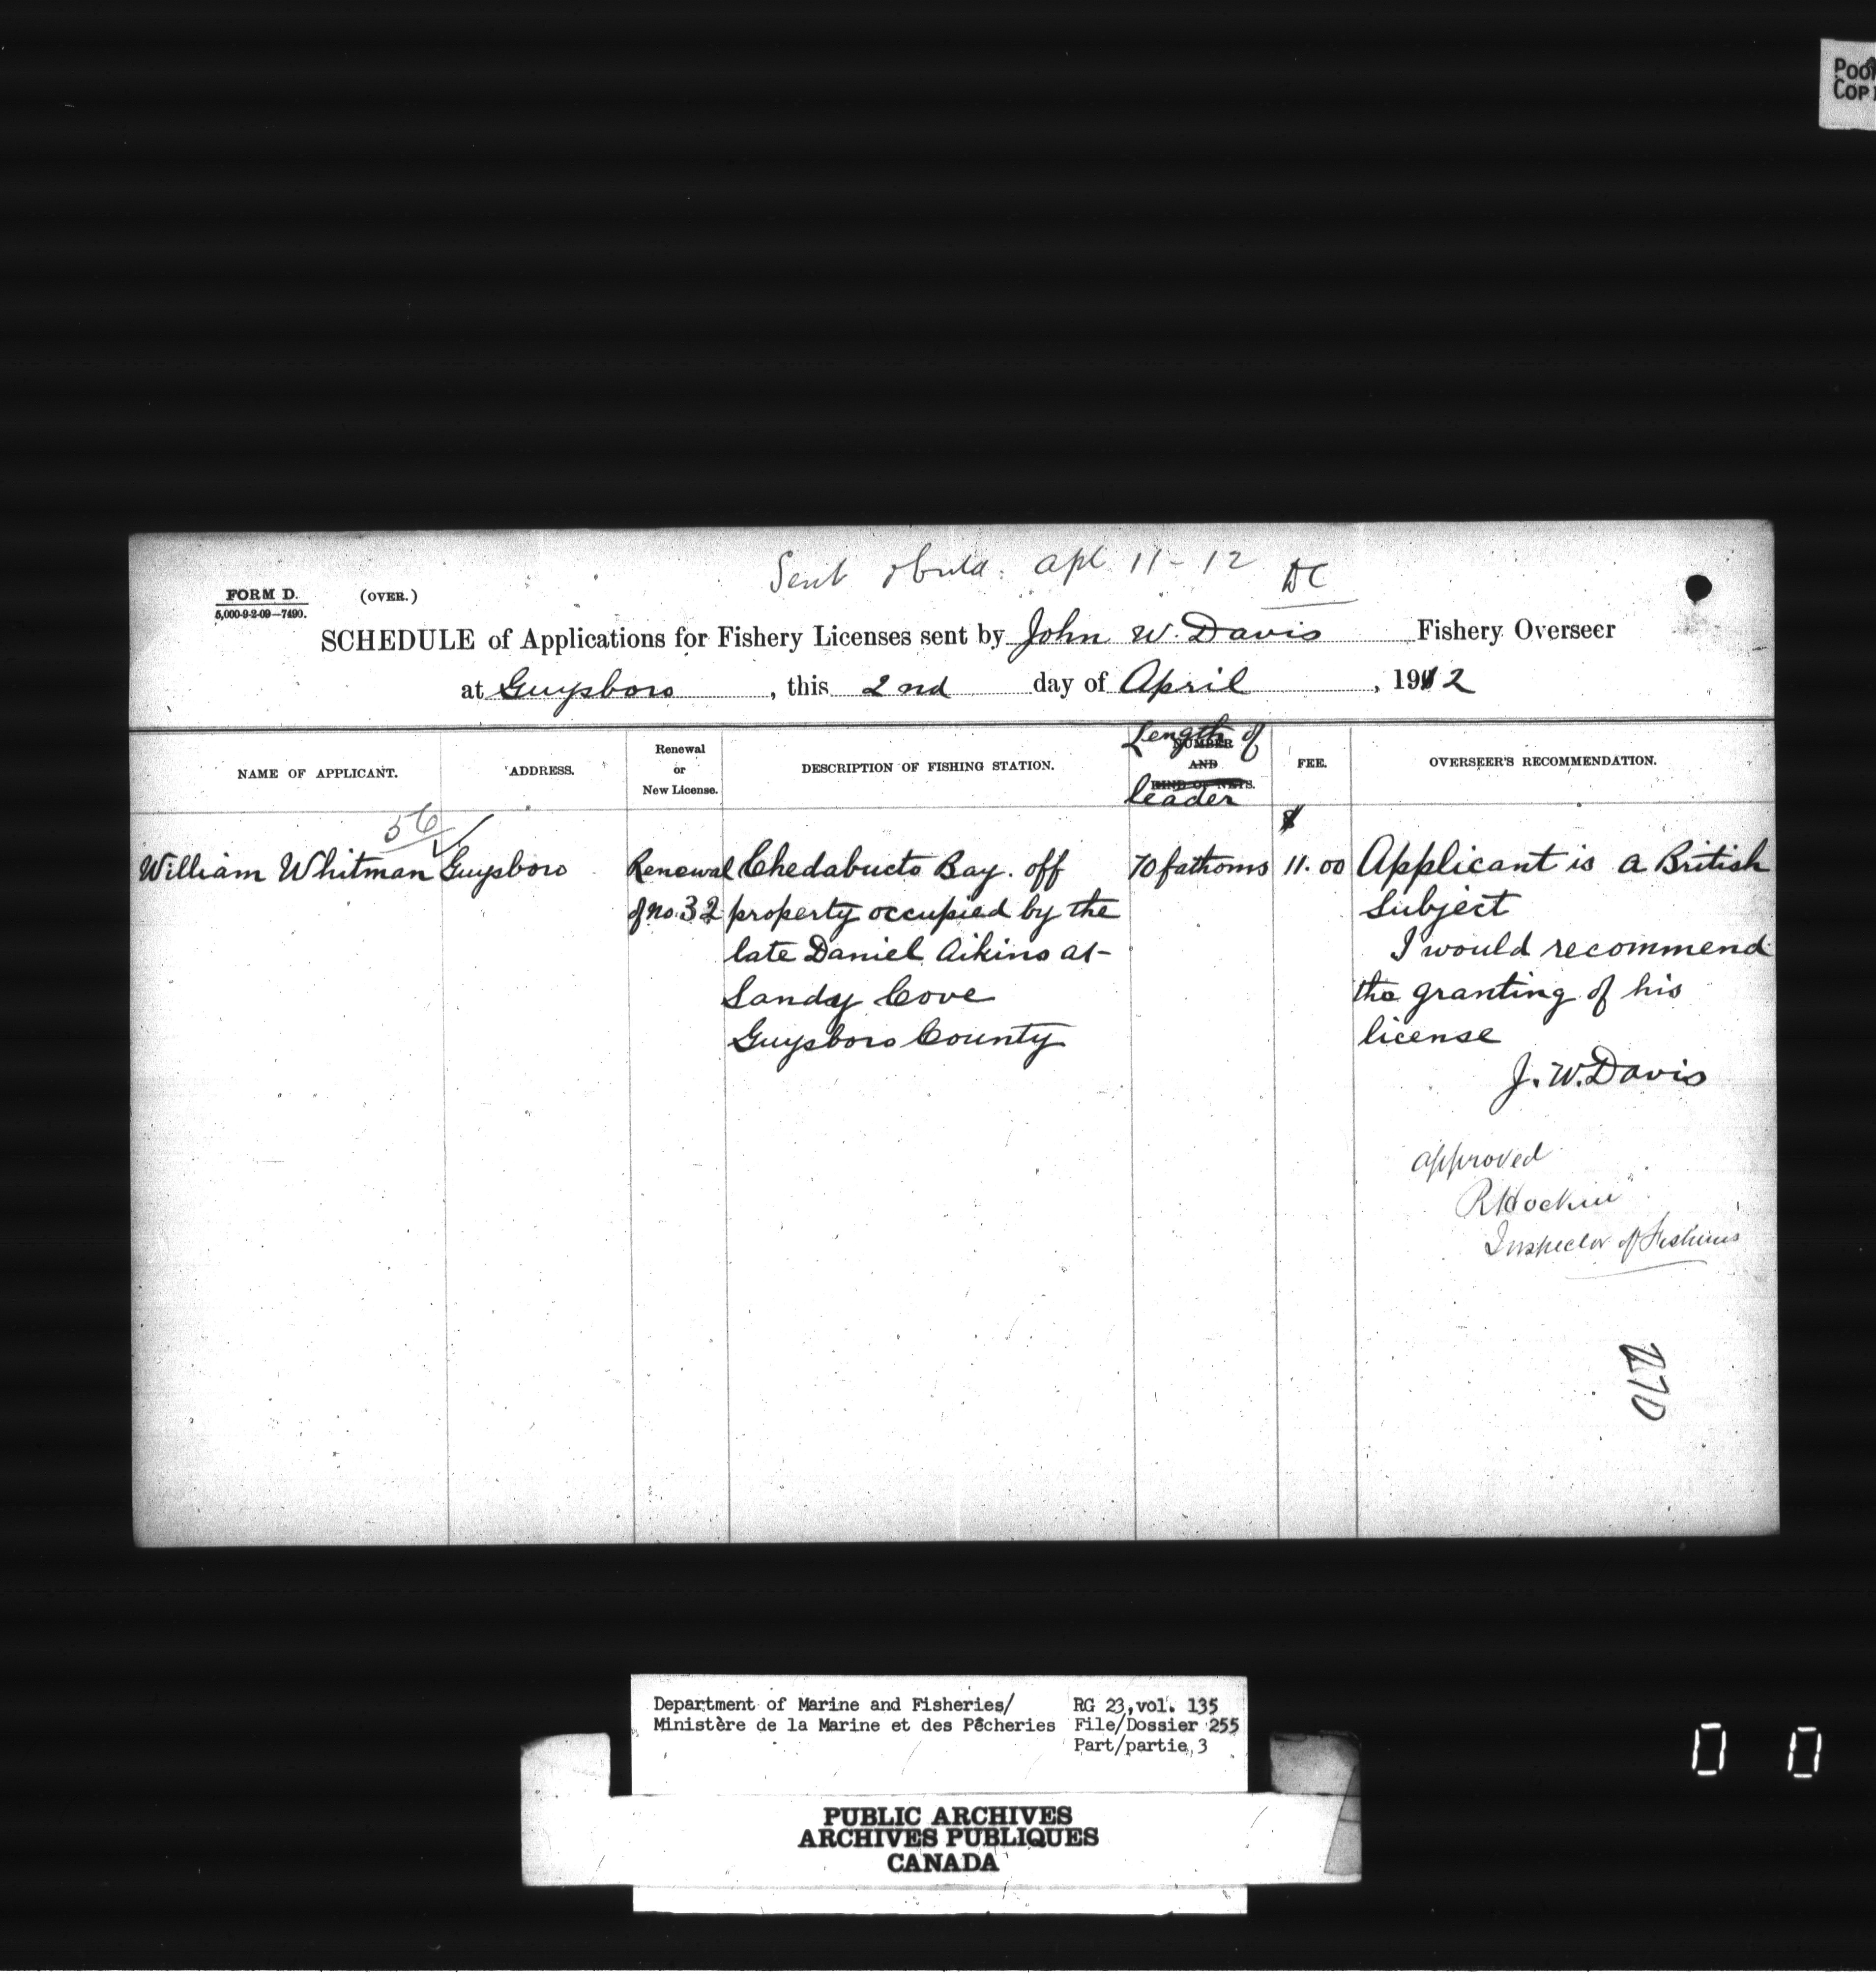 Poor
Copy
Sent apl 11-12 DC
FORM D.
(OVER.)
5,000-9-2-09—7490.
SCHEDULE of Applications for Fishery Licenses sent by John W. Davis Fishery Overseer
at Guysboro, this 2nd day of April, 1912
NAME OF APPLICANT.
ADDRESS.
Renewal
or
New License.
DESCRIPTION OF FISHING STATION.
Length of
NUMBER
AND
KIND OF NETS.
leader
FEE.
OVERSEER'S RECOMMENDATION.
56
$
William Whitman Guysboro Renewal Chedabucto Bay. off 70 fathoms 11.00 Applicant is a British
of no. 32 property occupied by the Subject
late Daniel Aikins at I would recommend
Sandy Cove the granting of his
Guysboro County license
J. W. Davis
approved
R Hockin
Inspector of Fisheries
270
Department of Marine and Fisheries/ RG 23, vol. 135
Ministère de la Marine et des Pêcheries File/Dossier 255
Part/partie 3
PUBLIC ARCHIVES
ARCHIVES PUBLIQUES
CANADA
0 0